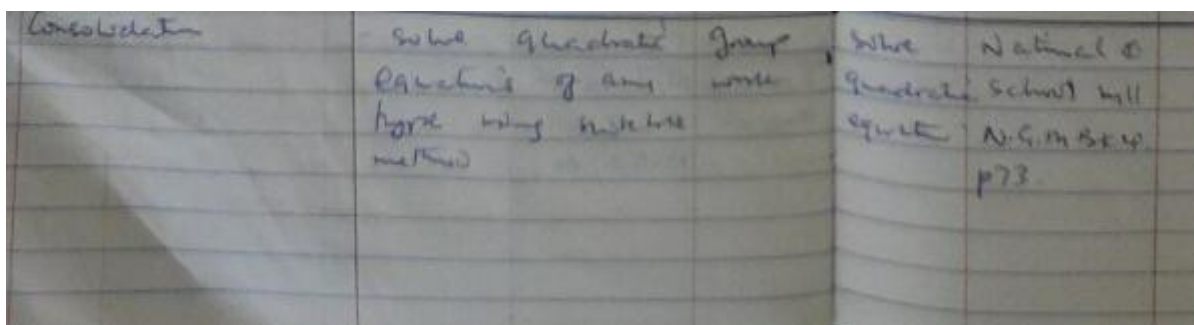 Consolidation
solve quadratic
equations of any
type using suitable
method
group
work
solve
quadratic
National &
School syll
N.G.M Bk 4
p73